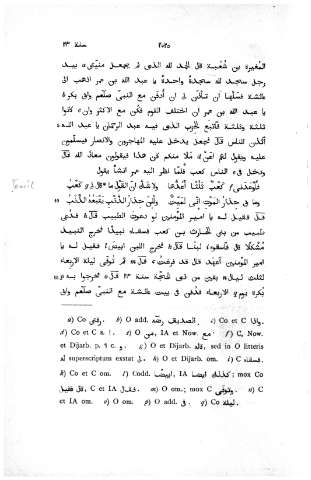 سنة ٢٣ ٢٧٢٥
المغيرة بن شُعْبة قال الحمد لله الذى لم يجعل منيّتى بيد
رجل سجد لله سجدة واحدة يا عبد الله بن عمر اذهب الى
عائشة فسلها ان تأذن لى ان أُدْفَن مع النبىّ صلّعم وابى بكرة
يا عبد الله بن عمر ان اختلف القوم فكُن مع الاكثر وان كانوا
ثلاثة وثلاثة فاتّبع الحزب الذى فيه عبد الرحمان يا عبد الله
أئذن للناس قال فجعل يدخل عليه المهاجرون والانصار فيسلّمون
عليه ويقول لهم أعن ملأ منكم كان هذا فيقولون معاذ الله قال
ودخل فى الناس كعب فلمّا نظر اليه عمر انشأ يقول
فأوعدنى كعب ثلثا أعدّها ولا شكّ ان القول ما قال لى كعب
وما بى حذار الموت انى لميّت ولكن حذار الذنب يتبعه الذنب
قال فقيل له يا امير المؤمنين لو دعوت الطبيب قال فدُعى
طبيب من بنى الحارث بن كعب فسقاه نبيذا فخرج النبيذ
مشكلا قال فاسقوه لبنا قال فخرج اللبن ابيض فقيل له يا
امير المؤمنين أعهد قال قد فرغت قال ثم توفّى ليلة الاربعاء
لثلث ليال بقين من ذى الحجّة سنة ٢٣ قال فخرجوا به
بكرة يوم الاربعاء فدُفن فى بيت عائشة مع النبىّ صلّعم وابى
a) Co رفى. b) O add. الصديق رضّه. c) Co et C واذا.
d) Co et C s. ا. e) O من, IA et Now. مع. f) C, Now.
et Dijarb. p. ١ c. و. g) O et Dijarb. قاله, sed in O litteris
له superscriptum exstat لى. h) O et Dijarb. om. i) C فسقاه.
k) Co et C om. l) Codd. ابيضا, IA كذلك ايضا; mox Co
فقال, C et IA قال فقيل. m) O om.; mox C وتوفّى. n) C
et IA om. o) O om. p) O add. فى. q) Co ليلة.